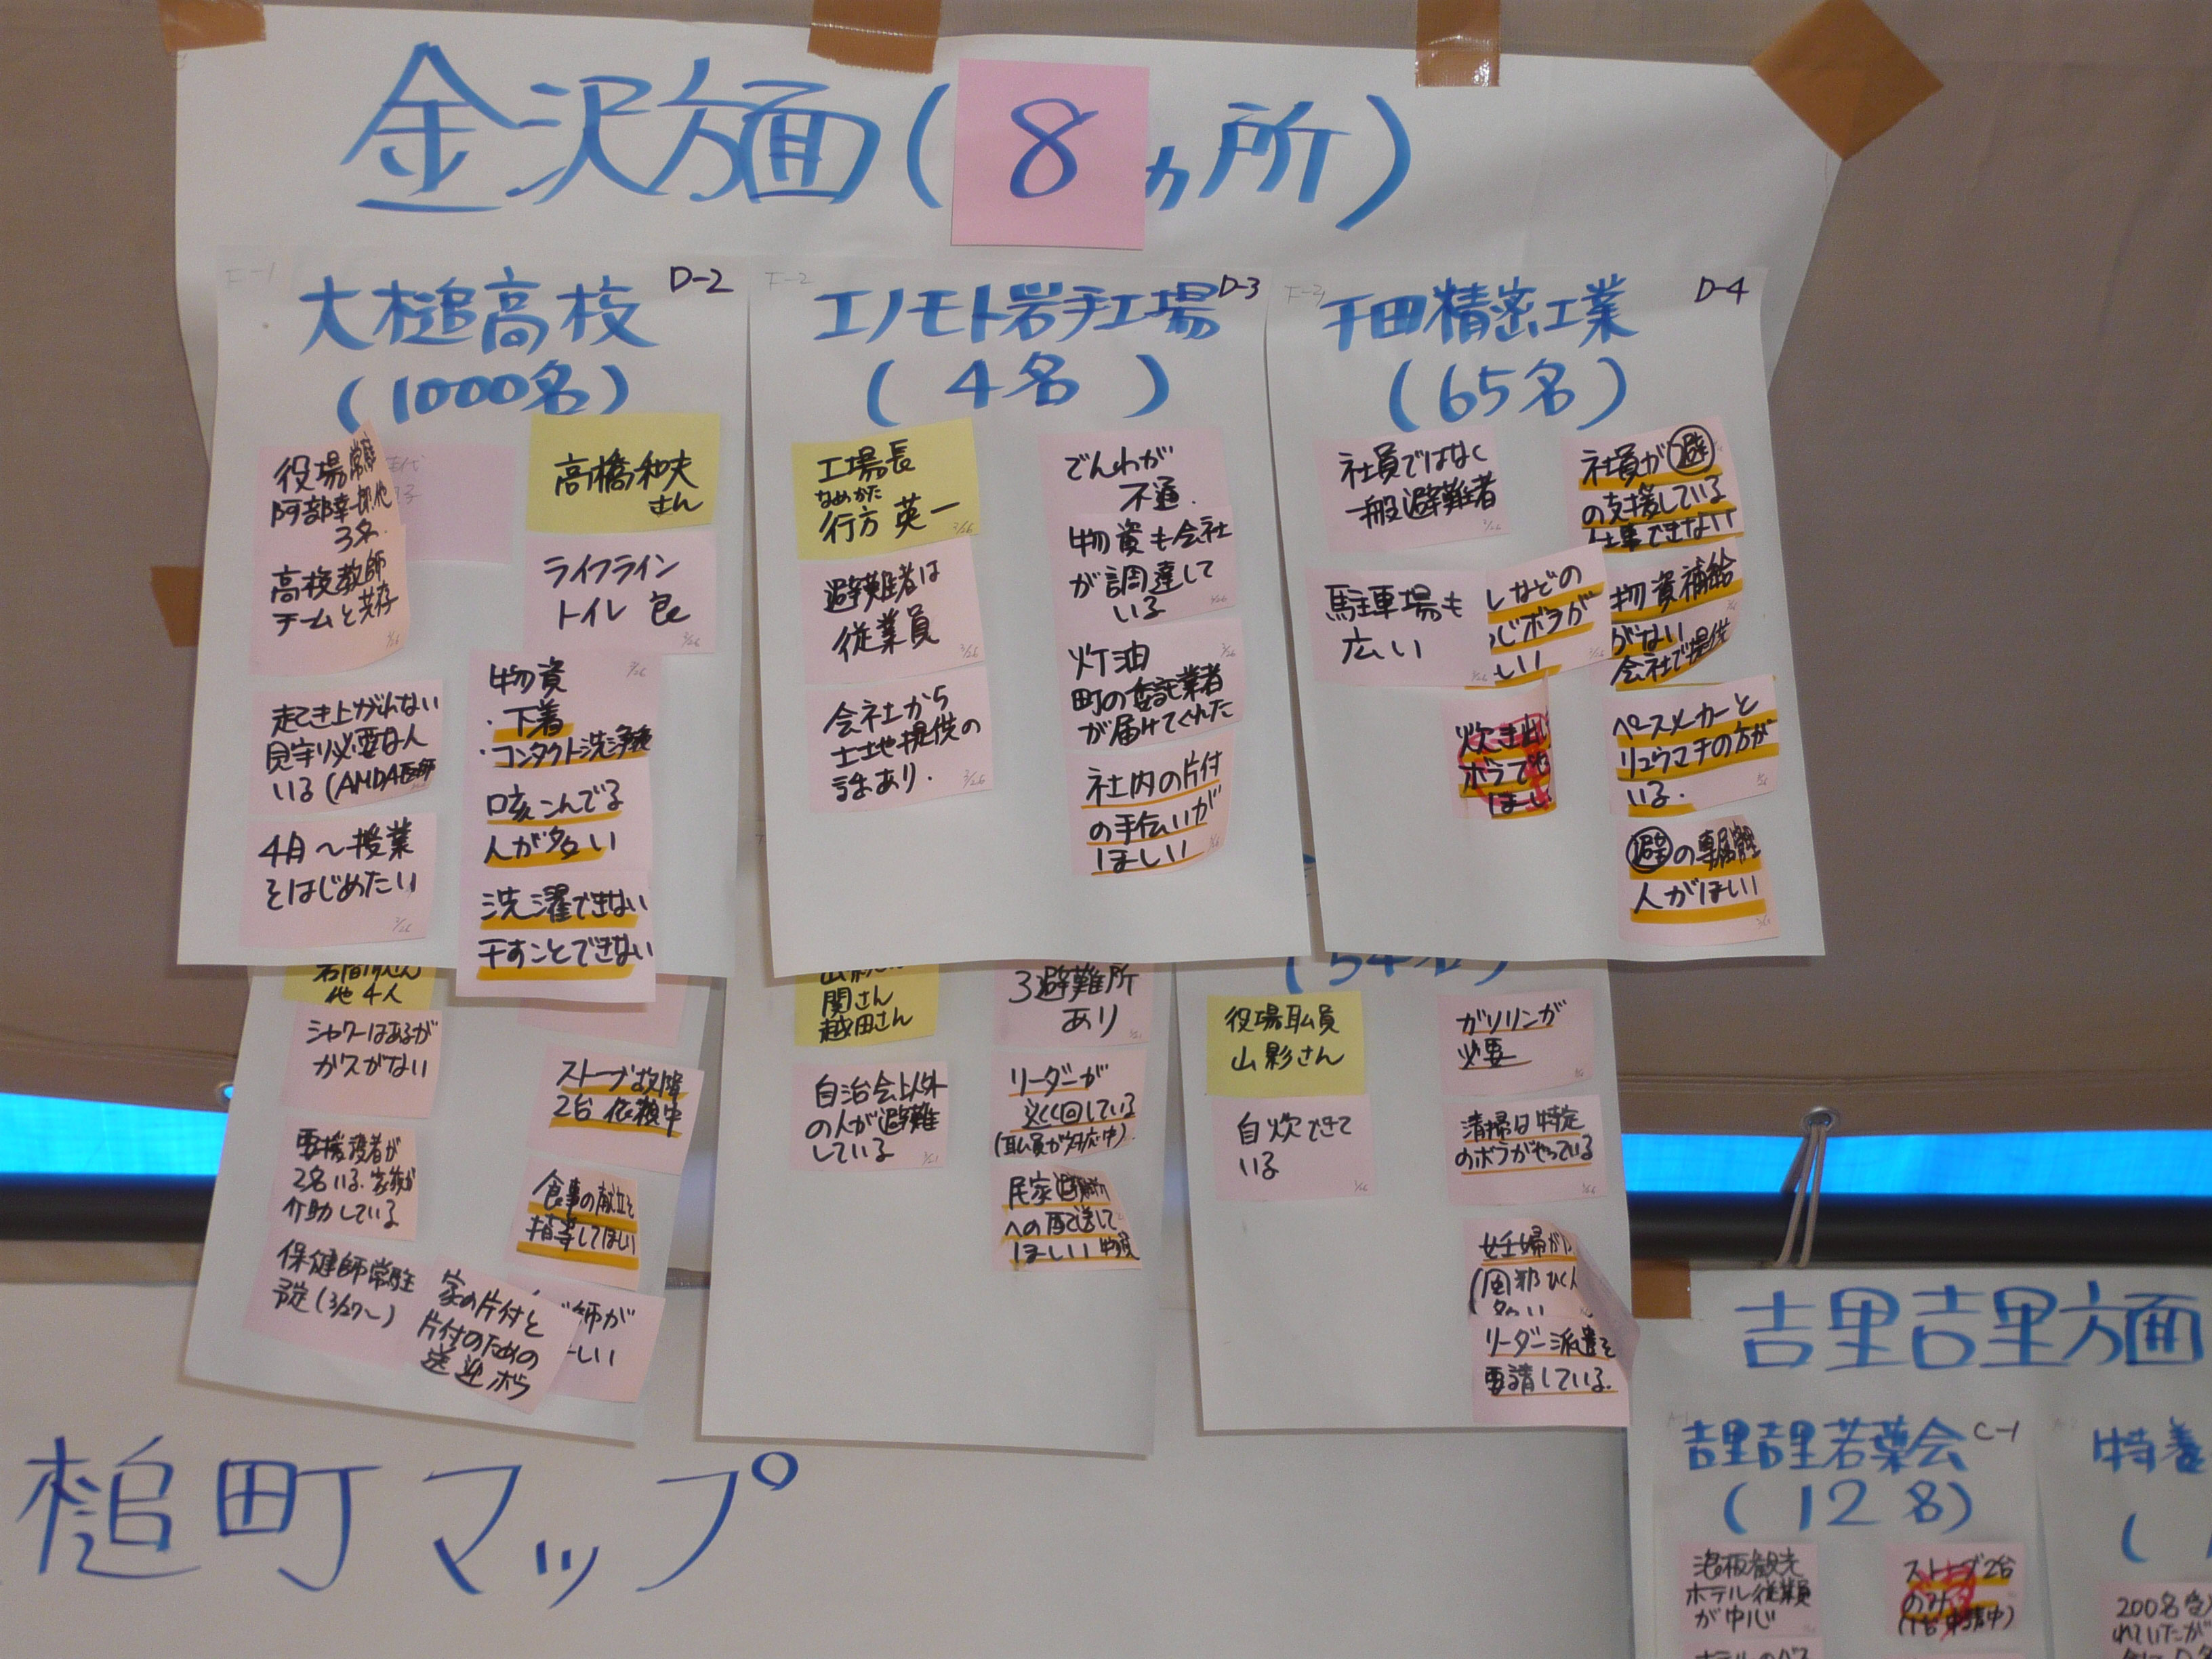 金沢方面(8ヵ所)
D-2
大槌高校
(1000名)
役場常駐
阿部幸一郎.他
3名.
高校教師
チームと共存
高橋和夫
さん
ライフライン
トイレ 良
起き上がれない
見守り必要な人
いる(AMDA医師
4月〜授業
をはじめたい
物資
・下着
・コンタクト洗浄液
咳こんでる
人が多い
洗濯できない
干すことできない
D-3
エノモト岩手工場
(4名)
工場長
なめかた
行方 英一
避難者は
従業員
会社から
土地提供の
話あり.
でんわが
不通.
物資も会社
が調達して
いる
灯油
町の委託業者
が届けてくれた
社内の片付
の手伝いが
ほしい
D-4
千田精密工業
(65名)
社員ではなく
一般避難者
駐車場も
広い
しなどの
じボラが
しい
炊き出し
ボラで
ほしい
社員が避
の支援している
仕事できない
物資補給
がない
会社で提供
ペースメーカーと
リュウマチの方が
いる.
避の専属管理
人がほしい
他4人
シャワーはあるが
ガスがない
要援護者が
2名いる.家族が
介助している
保健師常駐
予定(3/27〜)
ストーブ故障
2台 依頼中
食事の献立を
指導してほしい
家の片付と
片付のための
送迎ボラ
師が
しい
関さん
越田さん
自治会以外
の人が避難
している
3避難所
あり
リーダーが
(職員が対応中)
民家避難所
への配送して
ほしい 物資
(54名)
役場職員
山影さん
自炊できて
いる
ガソリンが
必要
清掃は特定
のボラがやっている
妊婦が
(風邪ひく人
多い
リーダー派遣を
要請している.
槌町マップ
吉里吉里方面
C-1
吉里吉里若葉会
(128)
浪板観光
ホテル従業員
が中心
ストーブ2台
のみ
(1台申請中)
特養
(
200名
れていたが